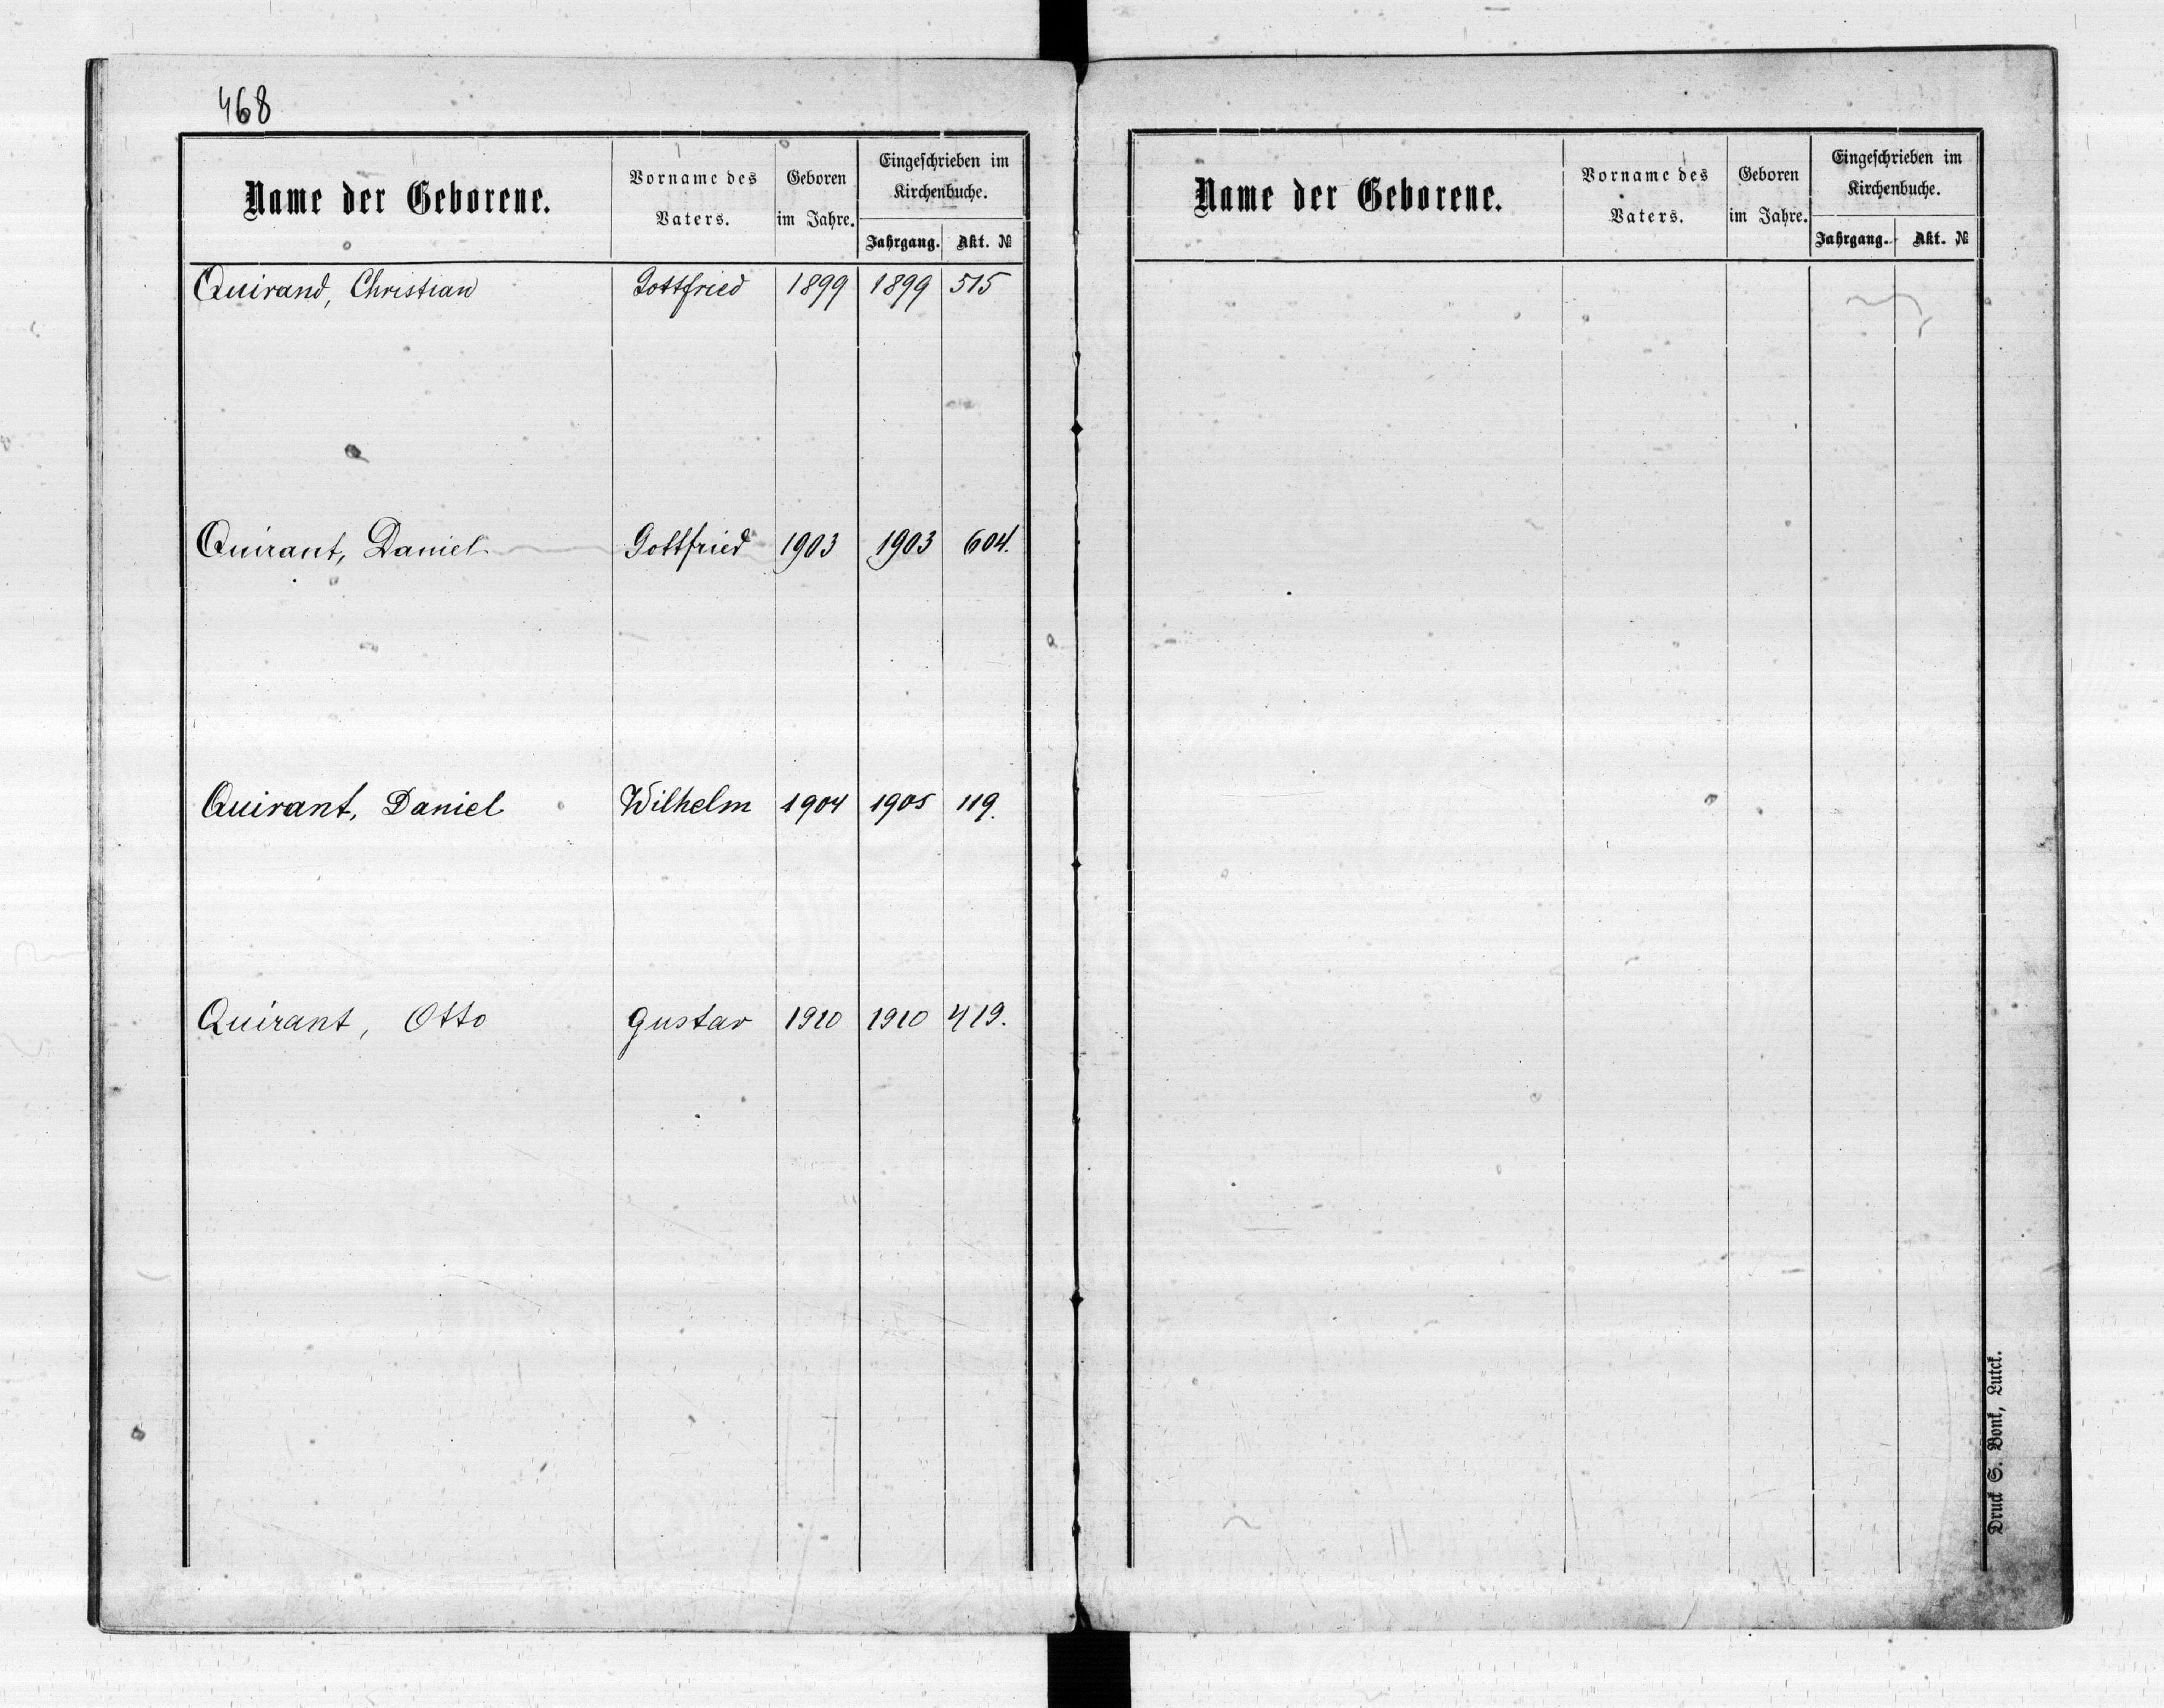 468
Name der Geborene. Vorname des Vaters. Geboren im Jahre. Eingeschrieben im Kirchenbuche. Jahrgang. Akt. №
Quirand, Christian Gottfried 1899 1899 515
Quirant, Daniel Gottfried 1903 1903 604.
Quirant, Daniel Wilhelm 1904 1905 119.
Quirant, Otto Gustav 1910 1910 419.
Name der Geborene. Vorname des Vaters. Geboren im Jahre. Eingeschrieben im Kirchenbuche. Jahrgang. Akt. №
Druck S. Bonk, Lutck.